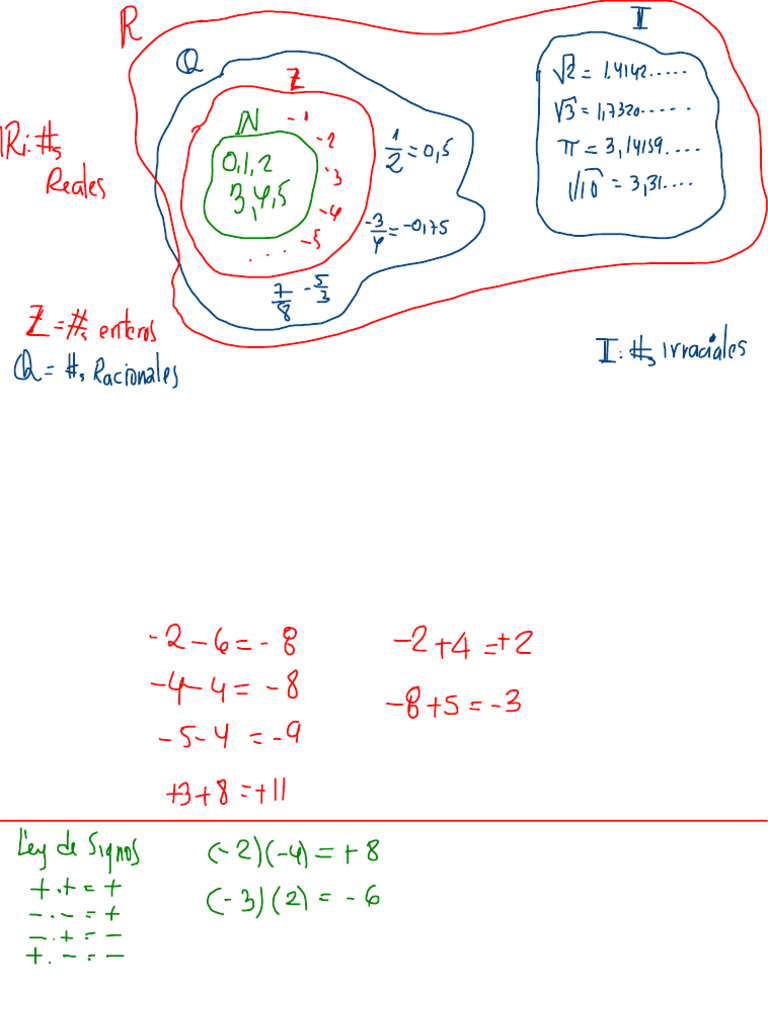 R
I
Q
Z
N
0,1,2
3,4,5
-1
-2
-3
-4
-5
. . . .
1/2 = 0,5
-3/4 = -0,75
7/8 -5/3
√2 = 1.4142.....
√3 = 1,7320.....
π = 3,14159....
√10 = 3,31....
IR: #s
Reales
Z = #s enteros
Q = #s Racionales
I: #s irraciales
-2-6=-8
-4-4=-8
-5-4=-9
+3+8=+11
-2+4=+2
-8+5=-3
Ley de Signos
+.+=+
-.-=+
-.+=-
+.-=-
(-2)(-4)=+8
(-3)(2)=-6